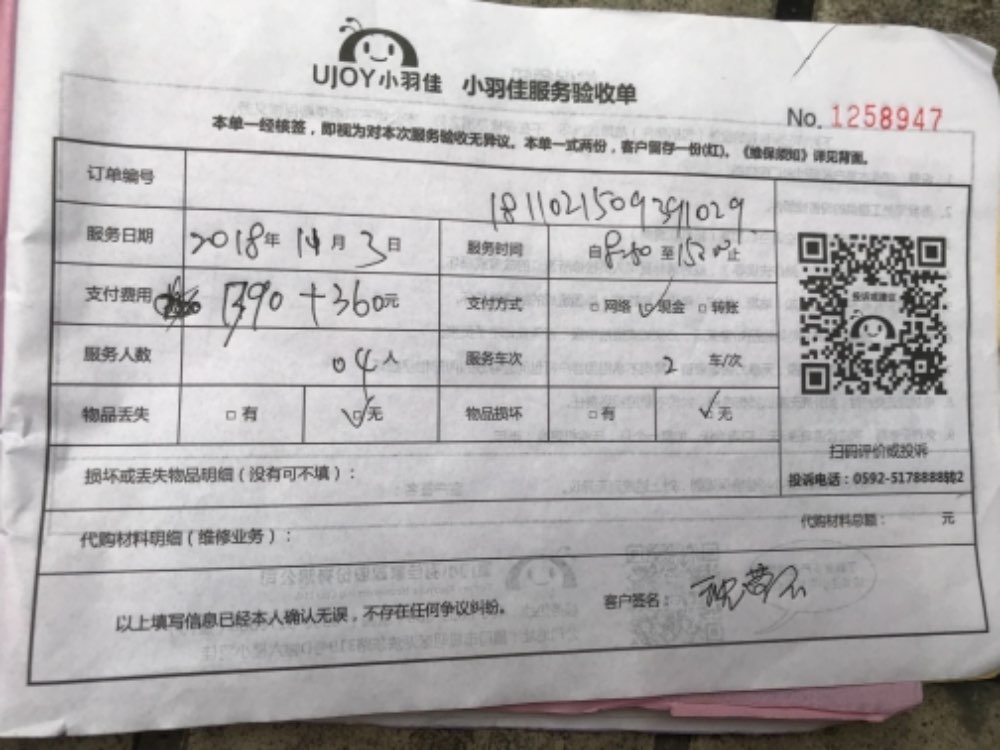 UJOY小羽佳 小羽佳服务验收单
No. 1258947
本单一经核签，即视为对本次服务验收无异议。本单一式两份，客户留存一份(红)。《维保须知》详见背面。
订单编号 18110215093911029
服务日期 2018年 11月 3日 服务时间 自8:30至15:20止
支付费用 1390+360元 支付方式 □网络 ☑现金 □转账
投诉或建议
服务人数 04人 服务车次 2 车/次
物品丢失 □有 ☑无 物品损坏 □有 ☑无
扫码评价或投诉
损坏或丢失物品明细（没有可不填）：
投诉电话：0592-5178888转2
代购材料总额： 元
代购材料明细（维修业务）：
以上填写信息已经本人确认无误，不存在任何争议纠纷。 客户签名：